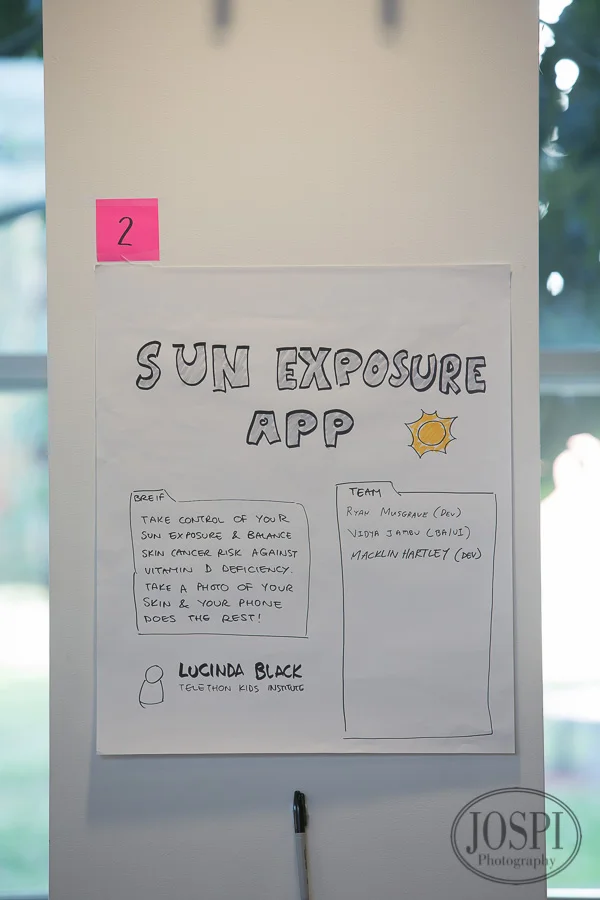 2
SUN EXPOSURE
APP
BREIF
TAKE CONTROL OF YOUR
SUN EXPOSURE & BALANCE
SKIN CANCER RISK AGAINST
VITAMIN D DEFICIENCY.
TAKE A PHOTO OF YOUR
SKIN & YOUR PHONE
DOES THE REST!
LUCINDA BLACK
TELETHON KIDS INSTITUTE
TEAM
RYAN MUSGRAVE (DEV)
VIDYA JAMBU (BA/UI)
MACKLIN HARTLEY (DEV)
JOSPI
Photography